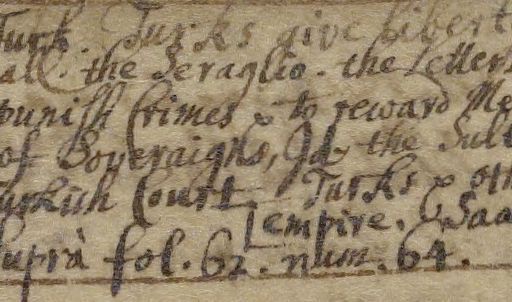 Turk. Turks give libert
all. the Seraglio. the Letters
punish Crimes & to reward Me
of Soveraigns, the Sult
urkish Court. Turks & oth
[empire. Saa
supra fol. 62. num. 64.